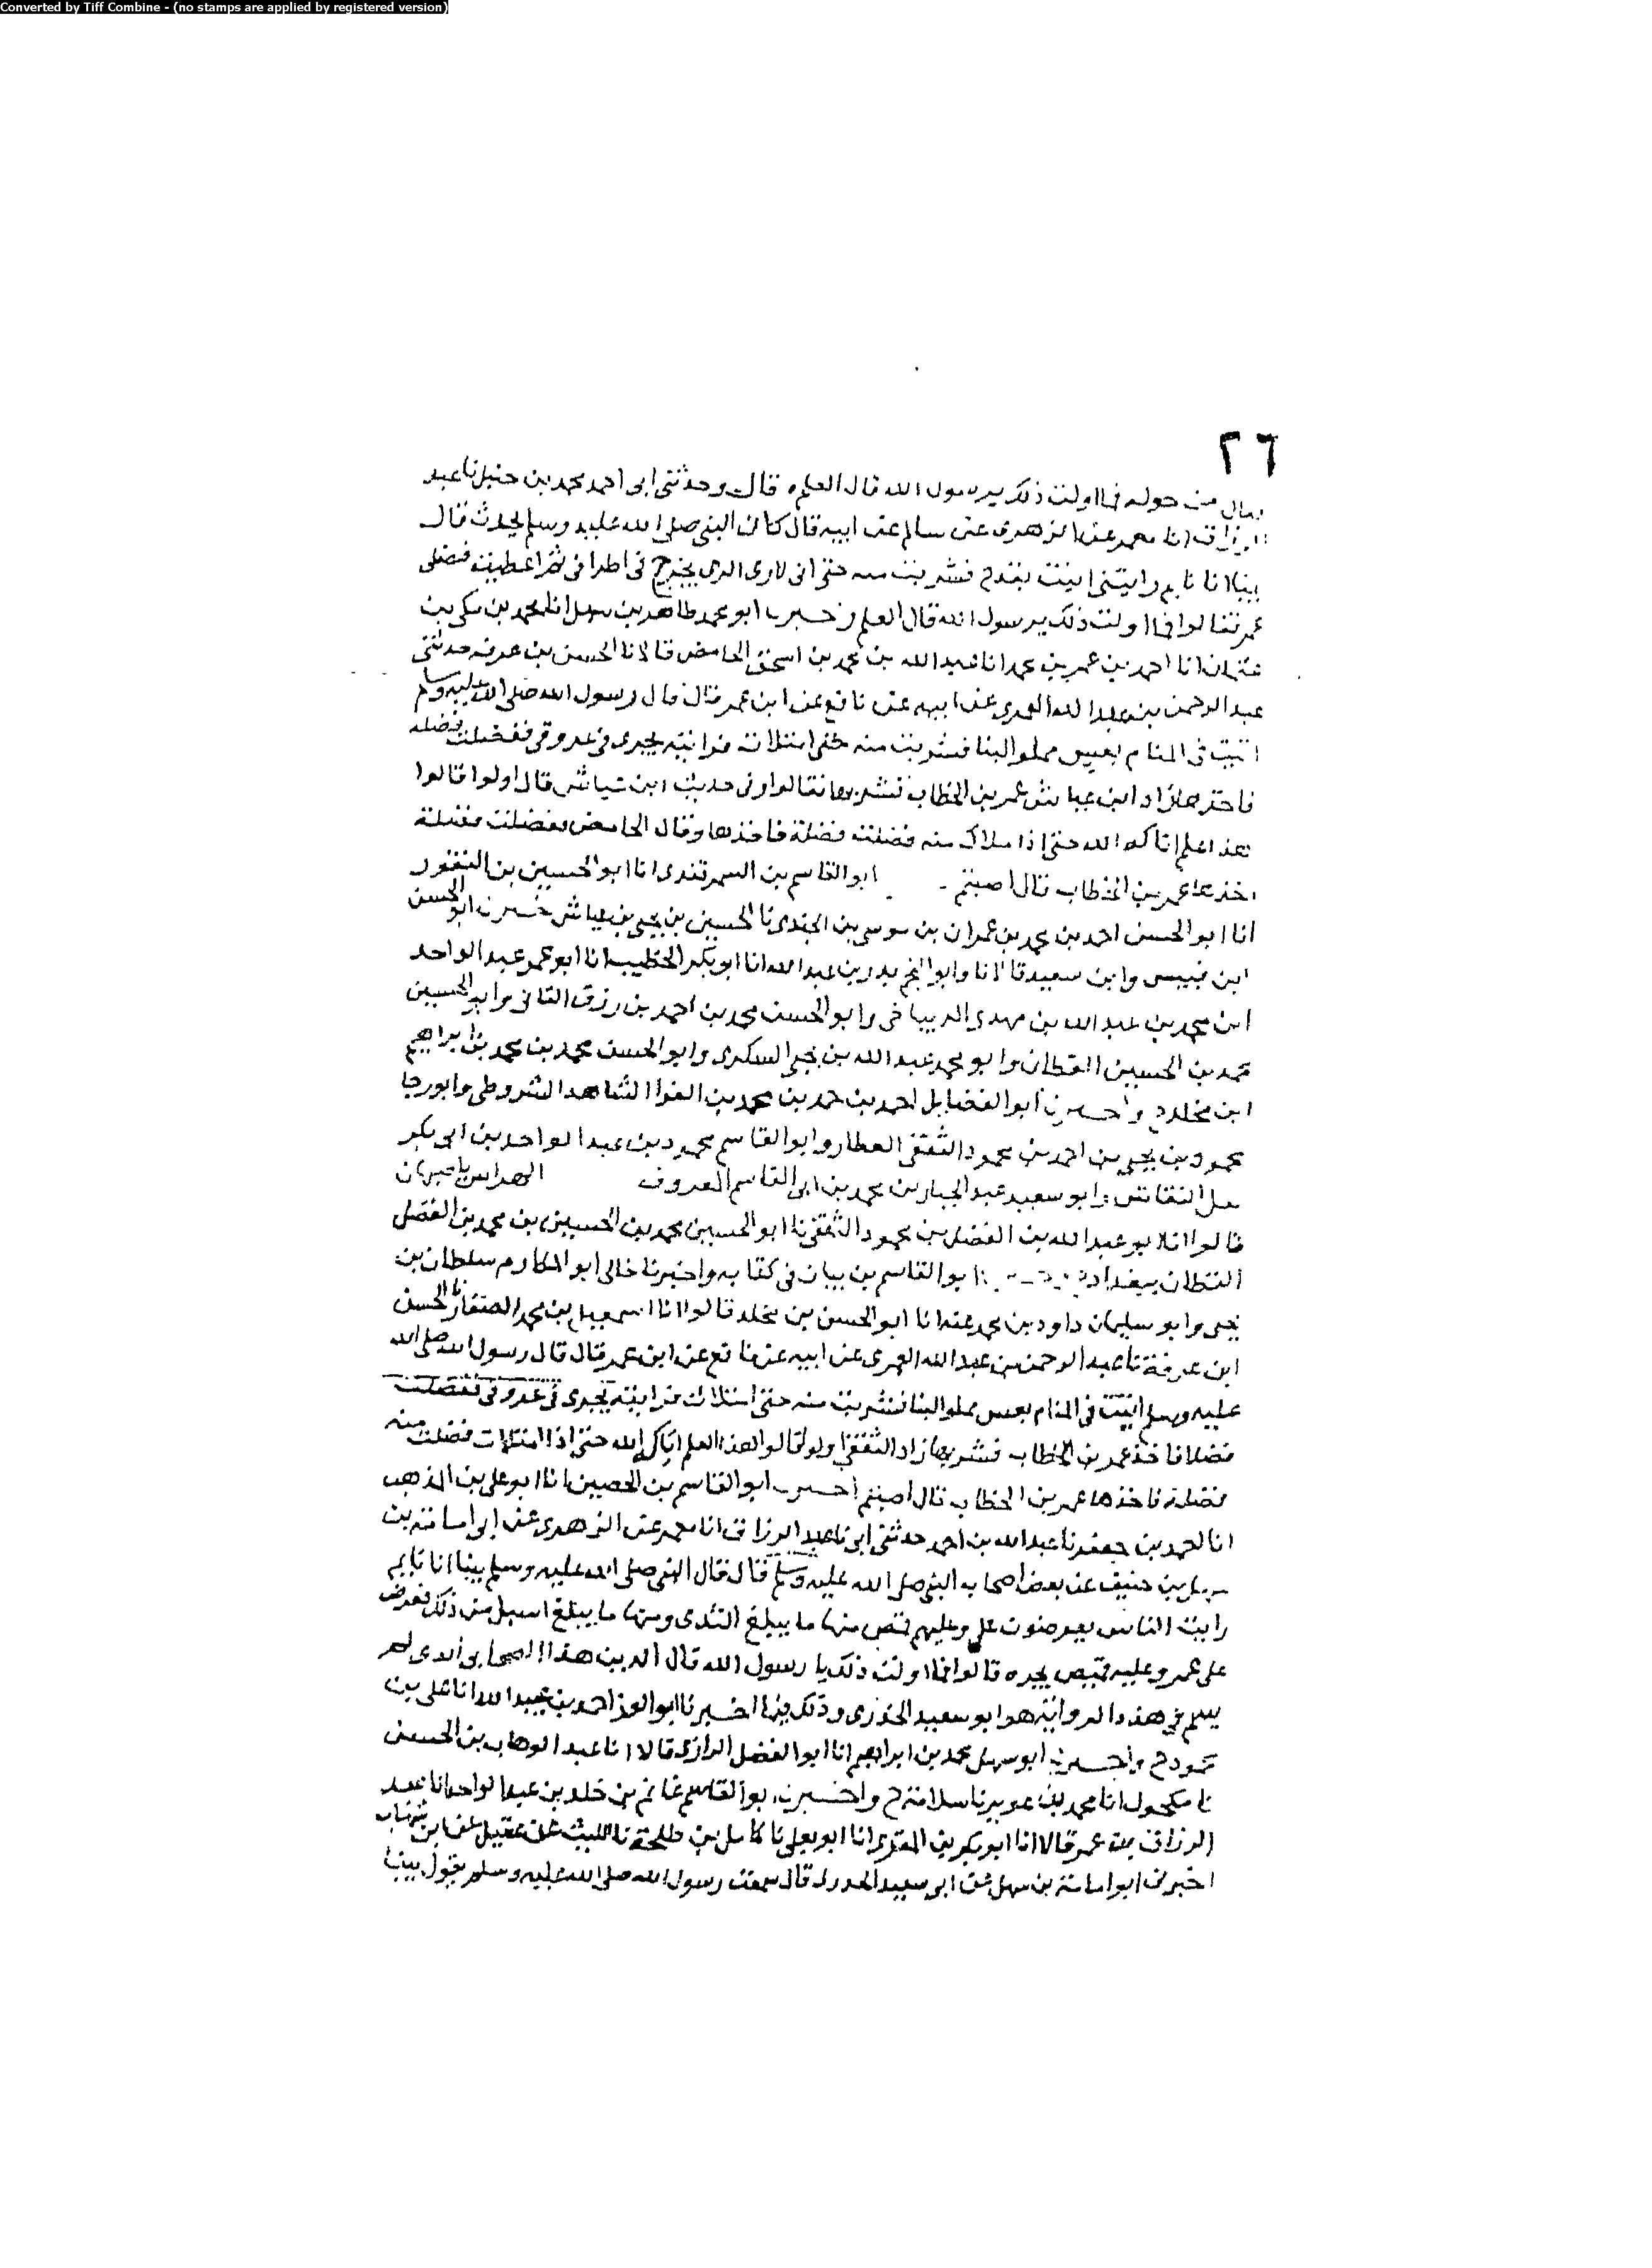 Converted by Tiff Combine - (no stamps are applied by registered version)
٢٦
فقال من حوله فما اولت ذلك يرسول الله قال العلم قال وحدثنى ابى احمد محمد بن حنبل نا عبد
الرزاق انا معمر عن الزهرى عن سالم عن ابيه قال كان النبى صلى الله عليه وسلم يحدث قال
بينا انا نايم رايتنى اتيت بقدح فشربت منه حتى انى لارى الرى يخرج فى اطرافى ثم اعطيت فضلى
عمر فقالوا فما اولت ذلك يرسول الله قال العلم اخبرنا ابو محمد طاهر بن سهل انا محمد بن مكى بن
عثمان انا احمد بن عمر بن محمد انا عبد الله بن محمد بن اسحق الحامض قالا نا الحسن بن عرفه حدثنى
عبد الرحمن بن عبد الله العمرى عن ابيه عن نافع عن ابن عمر قال قال رسول الله صلى الله عليه وسلم
اتيت فى المنام بعس مملو البنا فشربت منه حتى امتلات فرايته يجرى فى عروقى ففضلت فضله
فاخذها زاد ابن عياش عمر بن الخطاب فشربها فقالوا وفى حديث ابن عياش قال اولوا قالوا
هذا علم اتاكه الله حتى اذا ملاك منه فضلت فضلة فاخذها وقال الحامض ففضلت فضلة
اخذها عمر بن الخطاب قال اصبتم ابو القاسم بن السمرقندى انا ابو الحسين بن النقور
انا ابو الحسن احمد بن محمد بن عمران بن موسى بن الجندى نا الحسين بن يحيى بن عياش اخبرنا ابو الحسن
ابن قبيس وابن سعيد قالا نا وابو النجم بدر بن عبد الله انا ابو بكر الخطيب انا ابو عمر عبد الواحد
ابن محمد بن عبد الله بن مهدى الديباجى وابو الحسن محمد بن احمد بن رزق التانى وابو الحسين
محمد بن الحسين القطان وابو محمد عبد الله بن يحيى السكرى وابو الحسن محمد بن محمد بن ابراهيم
ابن مخلد ح واخبرنا ابو الفضايل احمد بن حمد بن محمد بن الفرا الشاهد الشروطى وابو رجا
محمود بن يحيى بن احمد بن محمود الثقفى العطار وابو القاسم محمود بن عبد الواحد بن ابى بكر
النقاش وابو سعيد عبد الجبار بن محمد بن ابى القاسم المعروف الهراس باصبهان
قالوا انا ابو عبد الله بن الفضل بن محمود الثقفى نا ابو الحسين محمد بن الحسين بن محمد بن الفضل
القطان ببغداد ابو القاسم بن بيان فى كتابه واخبرنا خالى ابو المكارم سلطان بن
يحيى وابو سليمان داود بن محمد عنه انا ابو الحسن بن مخلد قالوا انا اسمعيل بن محمد الصفار نا الحسن
ابن عرفة نا عبد الرحمن بن عبد الله العمرى عن ابيه عن نافع عن ابن عمر قال قال رسول الله صلى الله
عليه وسلم اتيت فى المنام بعس مملو البنا فشربت منه حتى امتلات فرايته يجرى فى عروقى ففضلت
فضلا فاخذ عمر بن الخطاب فشربها زاد الثقفى اولو قالوا هذا العلم اتاكه الله حتى اذا امتلات فضلت منه
فضلة فاخذها عمر بن الخطاب قال اصبتم اخبرنا ابو القاسم بن الحصين انا ابو على بن المذهب
انا احمد بن جعفر نا عبد الله بن احمد حدثنى ابى نا عبد الرزاق انا معمر عن الزهرى عن ابى امامة بن
سهل بن حنيف عن بعض اصحاب النبى صلى الله عليه وسلم قال قال النبى صلى الله عليه وسلم بينا انا نايم
رايت الناس يعرضون على وعليهم قمص منها ما يبلغ الثدى ومنها ما يبلغ اسفل من ذلك فعرض
على عمر وعليه قميص يجره قالوا فما اولت ذلك يا رسول الله قال الدين هذا الصحابى الذى لم
يسم فى هذه الرواية هو ابو سعيد الخدرى وذلك فيما اخبرنا ابو العز احمد بن عبيد الله انا على بن
محمود ح واخبرنا ابو سهل محمد بن ابراهيم انا ابو الفضل الرازى قالا انا عبد الوهاب بن الحسن
نا مكحول انا محمد بن عزيز نا سلامة ح واخبرنا ابو القاسم غانم بن خلد بن عبد الواحد انا عبد
الرزاق بن عمر قالا انا ابو بكر بن المقرى انا ابو يعلى نا كامل بن طلحة نا الليث عن عقيل عن ابن شهاب
اخبرنى ابو امامة بن سهل عن ابى سعيد الخدرى قال سمعت رسول الله صلى الله عليه وسلم يقول بينا